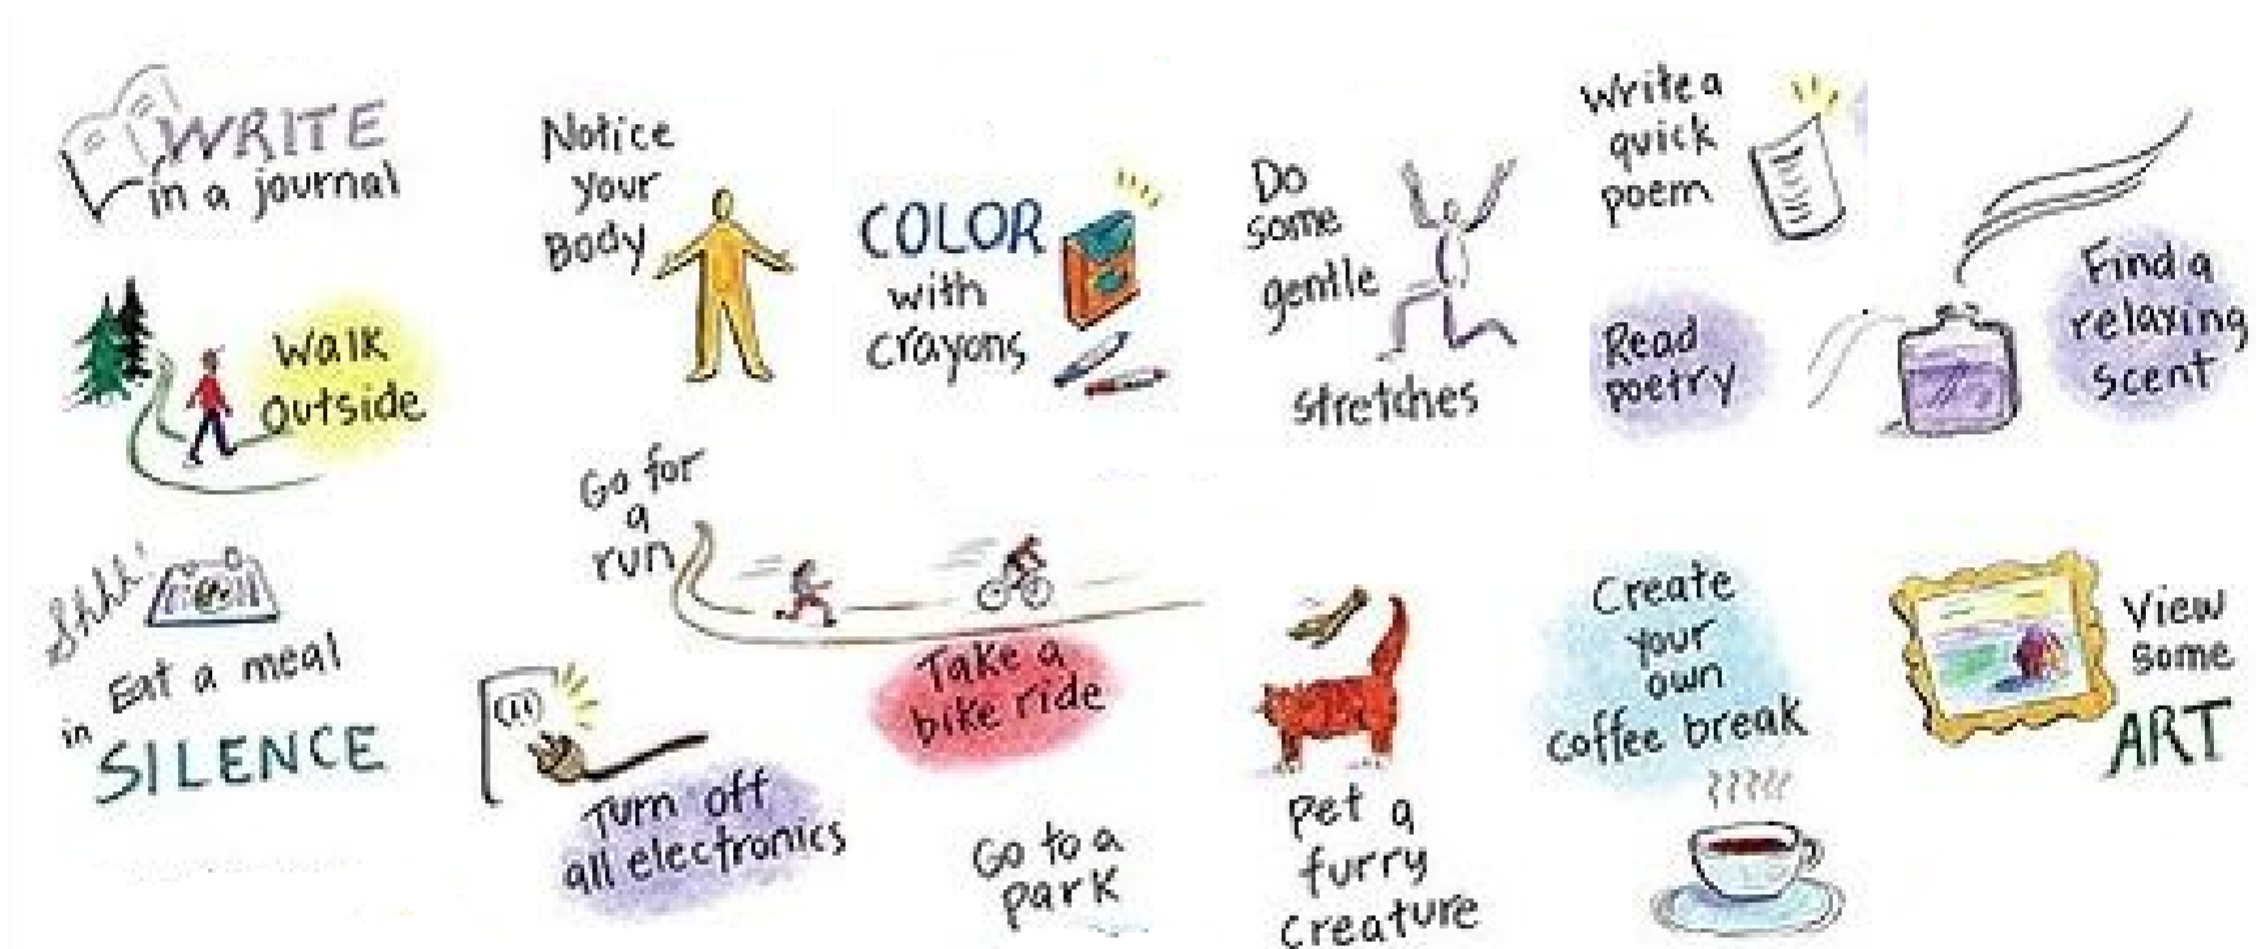 WRITE
in a journal
Notice
your
Body
COLOR
with
crayons
Do
some
gentle
stretches
Write a
quick
poem
Read
poetry
Find a
relaxing
scent
Walk
outside
Go for
a
run
Take a
bike ride
Shhh!
Eat a meal
in
SILENCE
Turn off
all electronics
Go to a
park
Pet a
furry
creature
Create
your
own
coffee break
View
some
ART